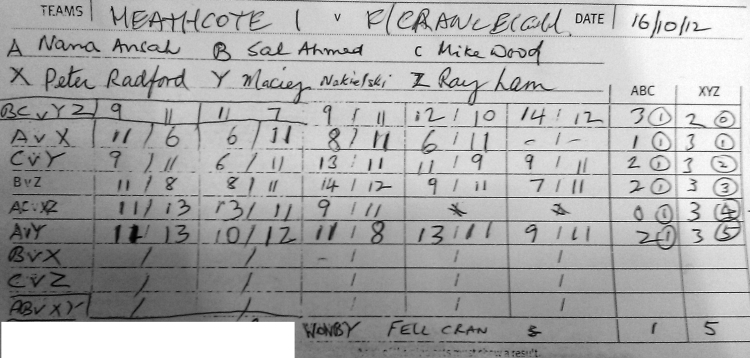 TEAMS HEATHCOTE 1 v F/CRANLEIGH DATE 16/10/12
A Nana Ansah B Sal Ahmed C Mike Wood
X Peter Radford Y Maciej Nakielski Z Ray Lam
ABC XYZ
BC v YZ 9 11 11 7 9 / 11 12 / 10 14 / 12 3 1 2 0
A v X 11 / 6 6 / 11 8 / 11 6 / 11 - / - 1 1 3 1
C v Y 9 / 11 6 / 11 13 / 11 11 / 9 9 / 11 2 1 3 2
B v Z 11 / 8 8 / 11 14 / 12 9 / 11 7 / 11 2 1 3 3
AC v XZ 11 / 13 13 / 11 9 / 11 * * 0 1 3 4
A v Y 11 / 13 10 / 12 11 / 8 13 / 11 9 / 11 2 1 3 5
B v X / / - / / /
C v Z / / / / /
AB v XY / / / / /
WON BY FELL CRAN 1 5